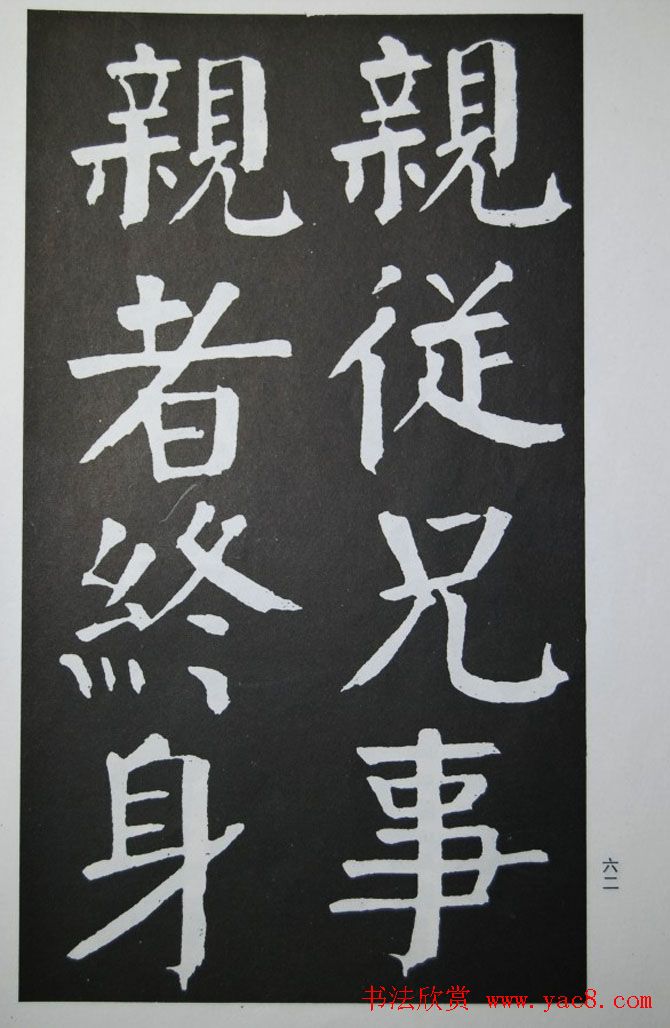 親従兄事
親者終身
六二
书法欣赏 www.yac8.com